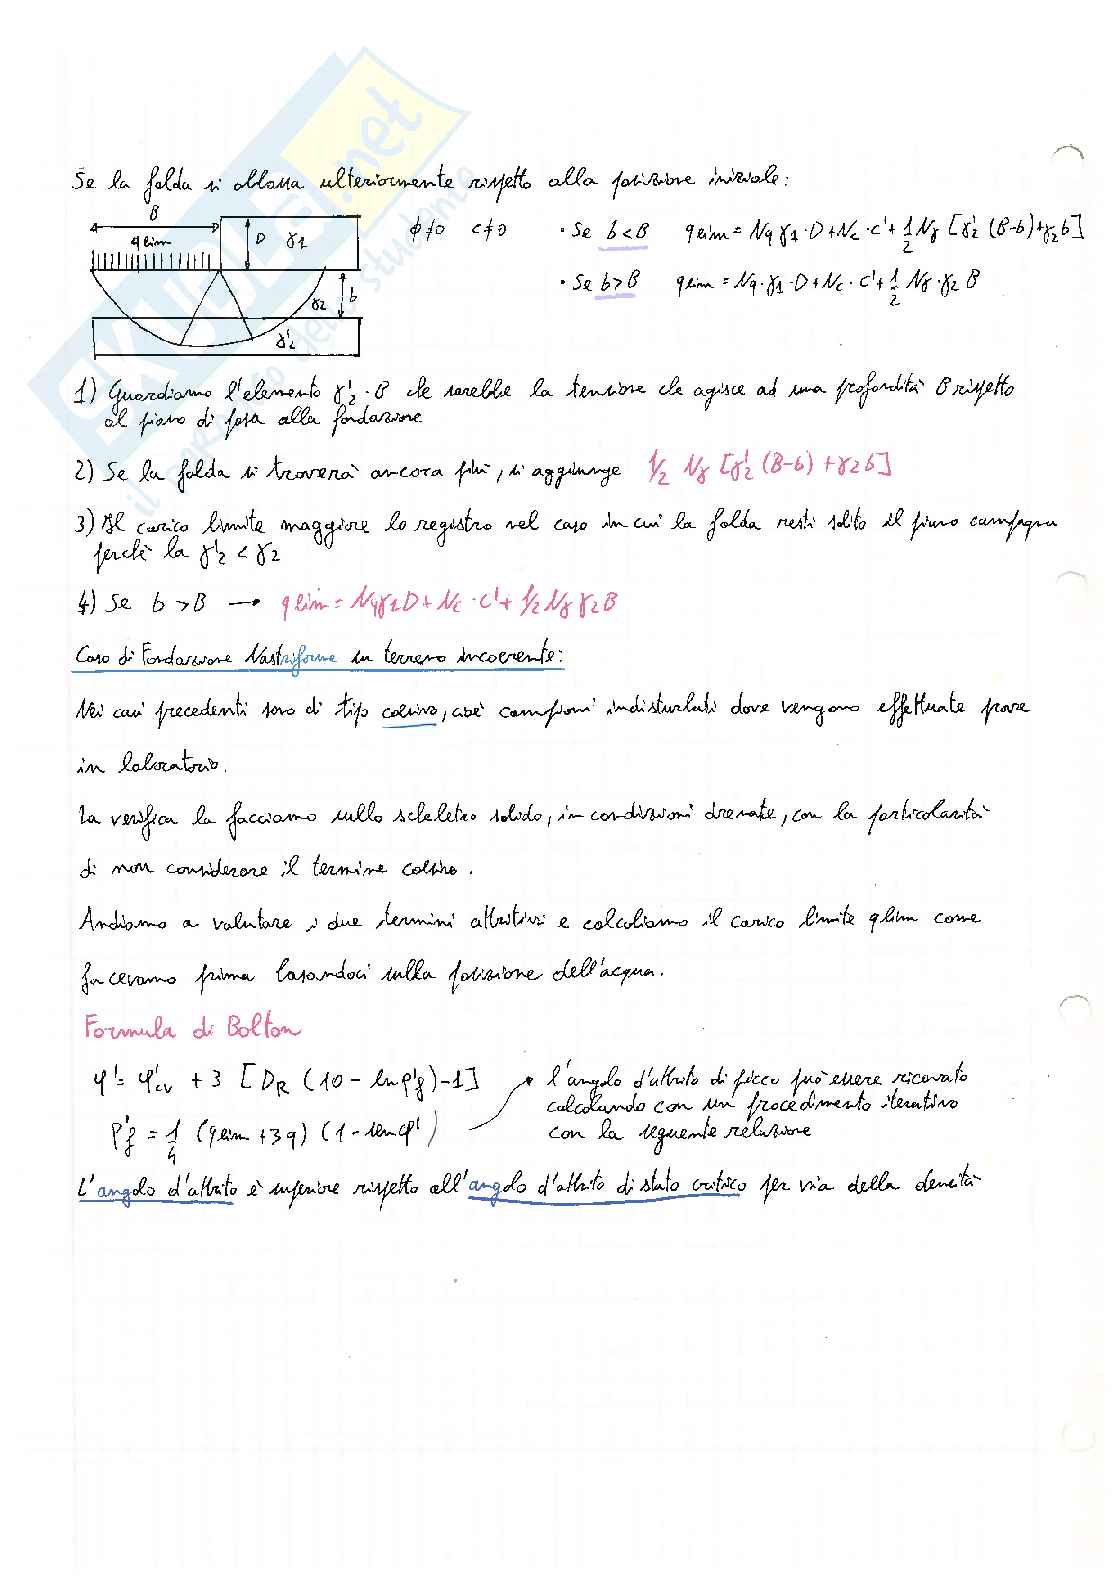 Se la falda si abbassa ulteriormente rispetto alla posizione iniziale:
B
q lim
D γ1
γ2 b
γ'2
ϕ≠0 c≠0
• Se b<B q lim = Nq γ1·D+Nc·c'+ 1/2 Nγ [γ'2 (B-b)+γ2 b]
• Se b>B q lim = Nq·γ1·D+Nc·c'+ 1/2 Nγ·γ2 B
1) Guardiamo l'elemento γ'2·B che sarebbe la tensione che agisce ad una profondità B rispetto
al piano di posa alla fondazione
2) Se la falda si troverà ancora più, si aggiunge 1/2 Nγ [γ'2 (B-b) +γ2 b]
3) Il carico limite maggiore lo registro nel caso in cui la falda resti solito il piano campagna
perchè la γ'2 < γ2
4) Se b >B → q lim = Nqγ1D+Nc·c'+1/2 Nγ γ2B
Caso di Fondazione Nastriforme su terreno incoerente:
Nei casi precedenti sono di tipo coesivo, cioè campioni indisturbati dove vengono effettuate prove
in laboratorio.
La verifica la facciamo sullo scheletro solido, in condizioni drenate, con la particolarità
di non considerare il termine coesivo.
Andiamo a valutare i due termini attritivi e calcoliamo il carico limite qlim come
facevamo prima basandoci sulla posizione dell'acqua.
Formula di Bolton
φ'= φ'cv + 3 [DR (10 - ln p'f)-1]
p'f = 1/4 (q lim +3q) (1 - sen φ')
l'angolo d'attrito di picco può essere ricavato
calcolando con un procedimento iterativo
con la seguente relazione
L'angolo d'attrito è inferiore rispetto all'angolo d'attrito di stato critico per via della densità